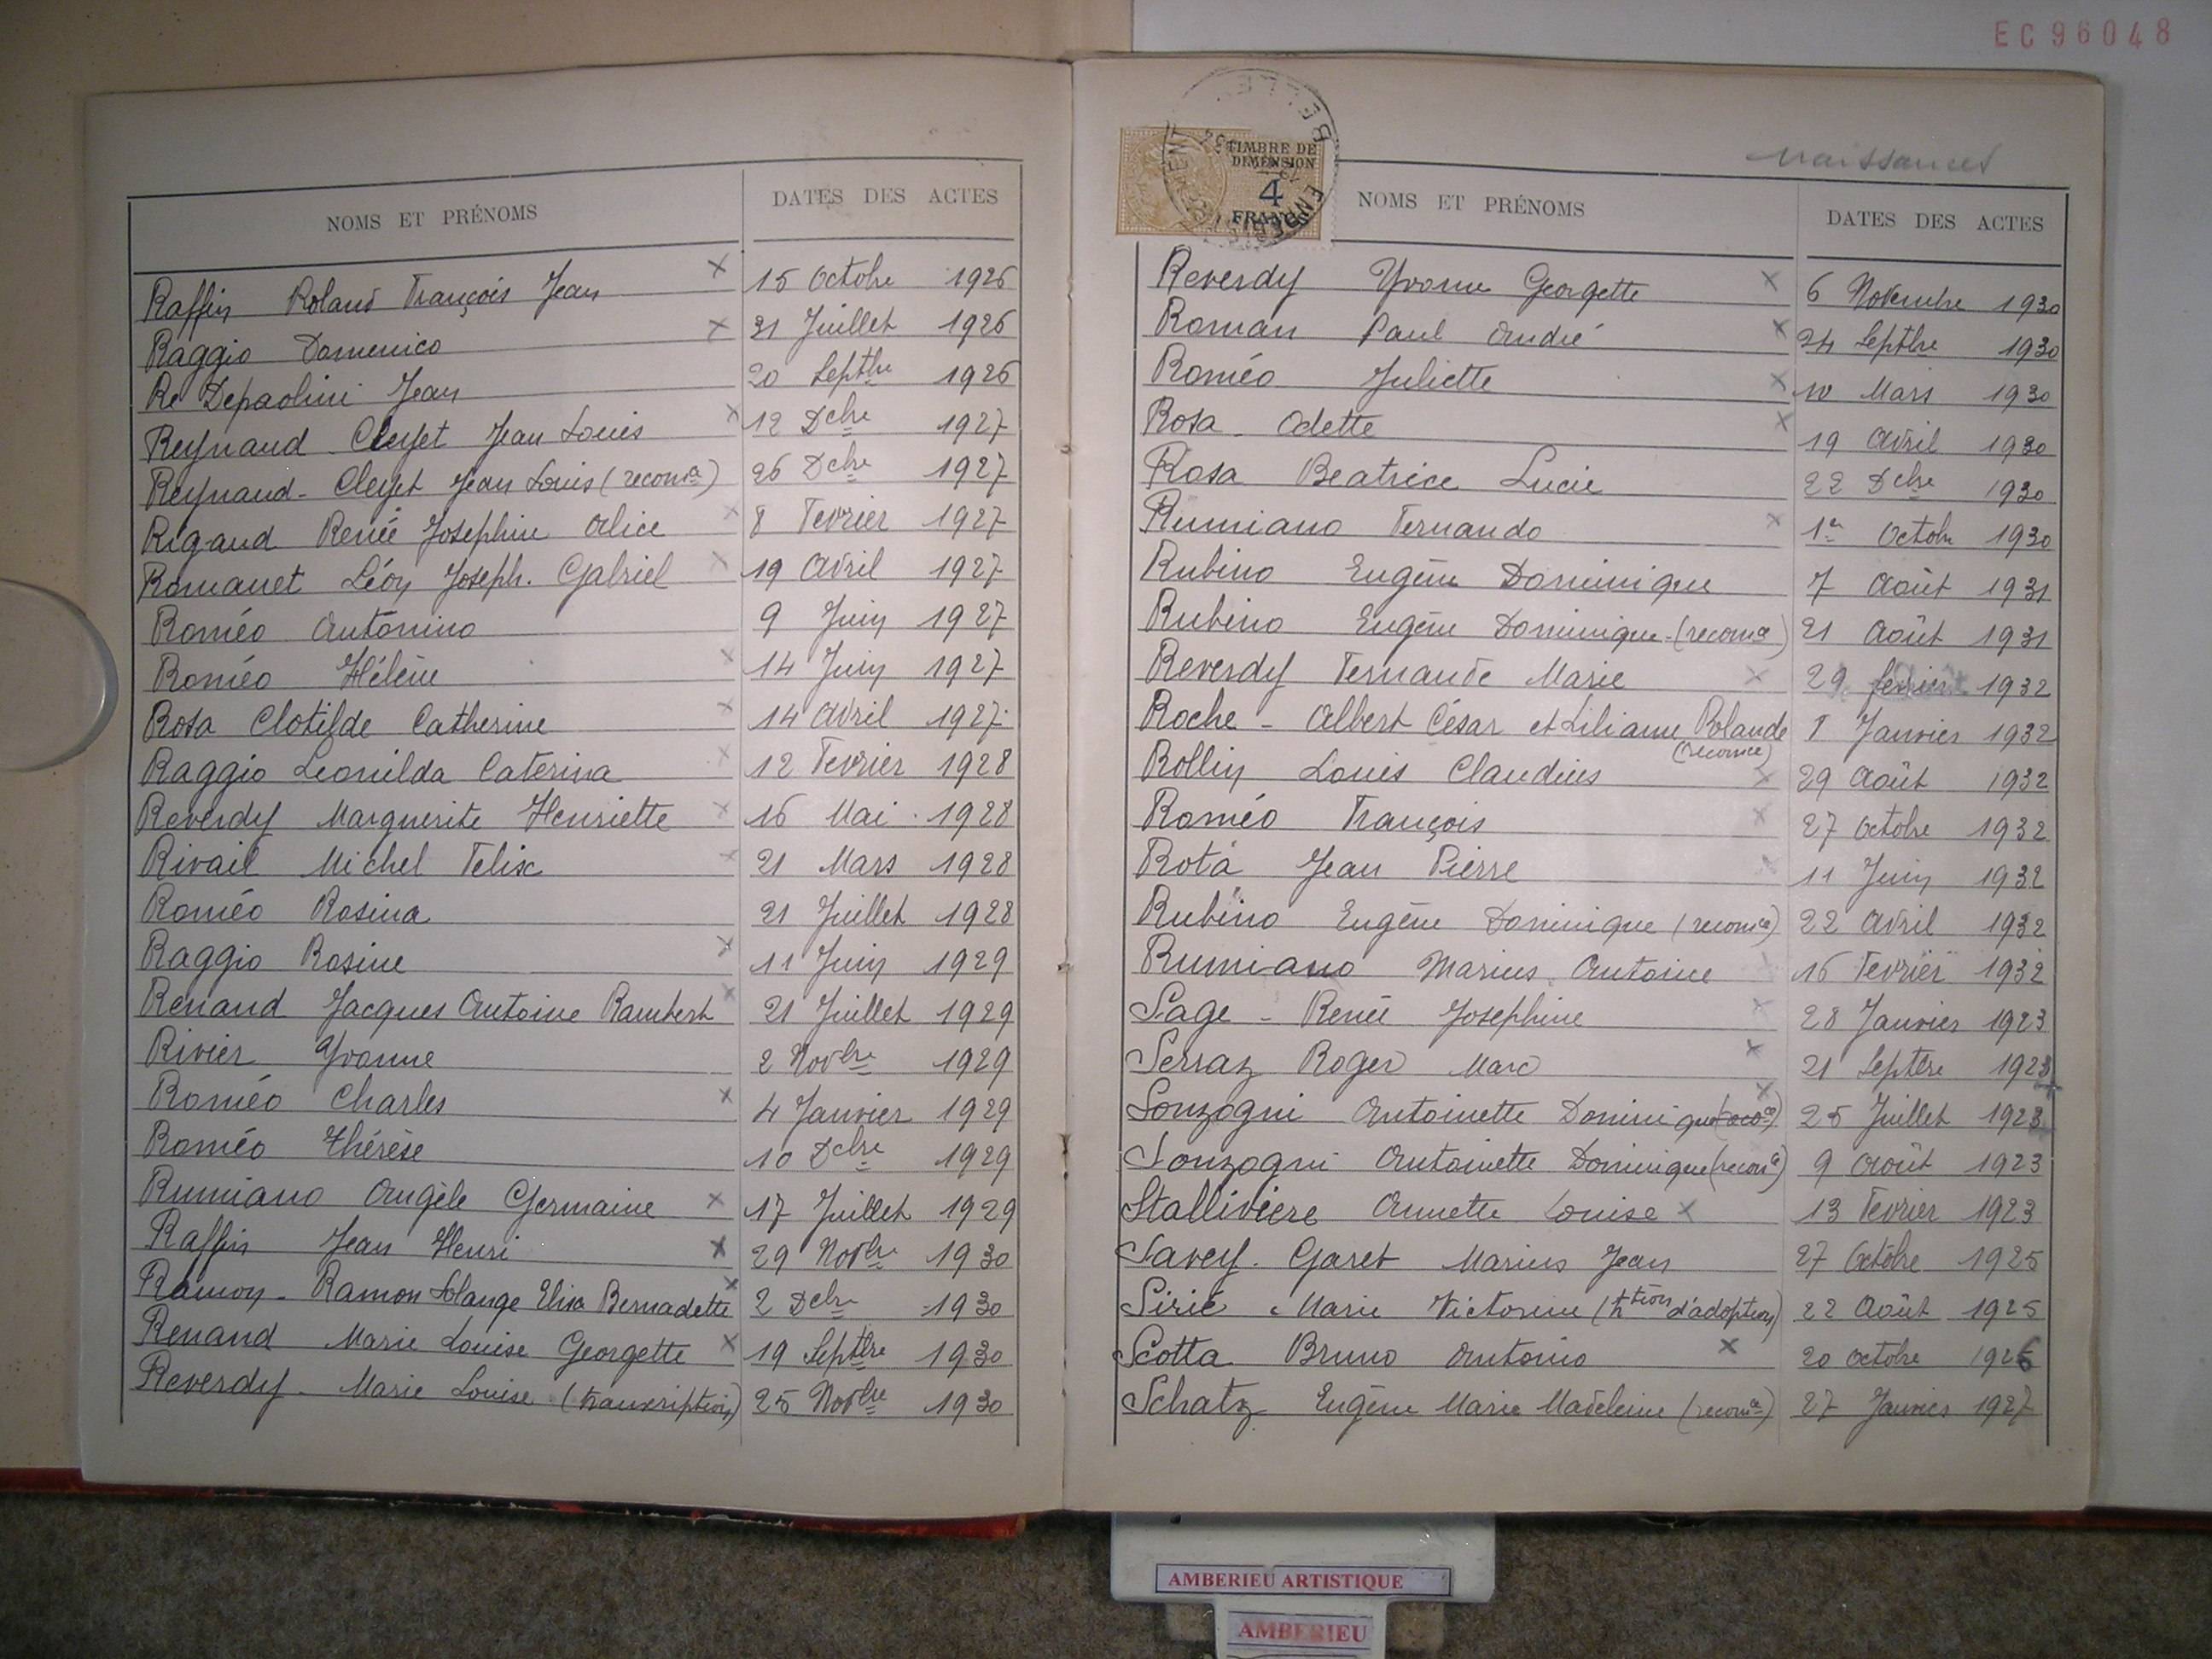 EC96048
NOMS ET PRÉNOMS DATES DES ACTES
Raffin Roland François Jean × 15 Octobre 1926
Raggio Domenico × 31 Juillet 1926
Re Depaolini Jean 20 Septbre 1926
Reynaud Cleyet Jean Louis × 12 Dcbre 1927
Reynaud - Cleyet Jean Louis (reconce) 26 Dcbre 1927
Rigaud Renée Josephine Alice × 8 Fevrier 1927
Romanet Léon Joseph. Gabriel × 19 Avril 1927
Roméo Antonino 9 Juin 1927
Roméo Hélène × 14 Juin 1927
Rosa Clotilde Catherine × 14 Avril 1927
Raggio Leonilda Caterina × 12 Fevrier 1928
Reverdy Marguerite Henriette × 16 Mai 1928
Rivail Michel Felix × 21 Mars 1928
Roméo Rosina 21 Juillet 1928
Raggio Rosine × 11 Juin 1929
Renand Jacques Antoine Rambert × 21 Juillet 1929
Rivier Yvonne 2 Novbre 1929
Roméo Charles × 4 Janvier 1929
Roméo Thérèse 10 Dcbre 1929
Rumiano Angèle Germaine × 17 Juillet 1929
Raffin Jean Henri × 29 Novbre 1930
Ramon - Ramon Solange Elisa Bernadette × 2 Dcbre 1930
Renand Marie Louise Georgette × 19 Septbre 1930
Reverdy - Marie Louise (transcription) 25 Novbre 1930
TIMBRE DE
DIMENSION
4
FRANCS
Naissances
NOMS ET PRÉNOMS DATES DES ACTES
Reverdy Yvonne Georgette × 6 Novembre 1930
Roman Paul André × 24 Septbre 1930
Roméo Juliette × 10 Mars 1930
Rosa - Odette × 19 Avril 1930
Rosa Beatrice Lucie 22 Dcbre 1930
Rumiano Fernando × 1er Octobre 1930
Rubino Eugène Dominique 7 Août 1931
Rubino Eugène Dominique - (reconce) 21 Août 1931
Reverdy Fernande Marie × 29 fevrier 1932
Roche - Albert César et Liliane Rolande 8 Janvier 1932
(reconnce)
Rollin Louis Claudius × 29 Août 1932
Roméo François × 27 Octobre 1932
Rota Jean Pierre × 11 Juin 1932
Rubino Eugène Dominique (reconce) 22 Avril 1932
Rumiano Marius Antoine 16 Fevrier 1932
Sage - Renée Josephine × 28 Janvier 1923
Serraz Roger Marc × 21 Septbre 1923
Sonzogni Antoinette Dominique × 25 Juillet 1923
Sonzogni Antoinette Dominique (reconce) 9 Août 1923
Stalliviere Annette Louise × 13 Fevrier 1923
Savey - Garet Marius Jean 27 Octobre 1925
Sirié Marie Victorine (ttion d'adoption) 22 Août 1925
Scotta Bruno Antonio × 20 Octobre 1926
Schatz Eugène Marie Madeleine (reconce) 27 Janvier 1927
AMBERIEU ARTISTIQUE
AMBERIEU